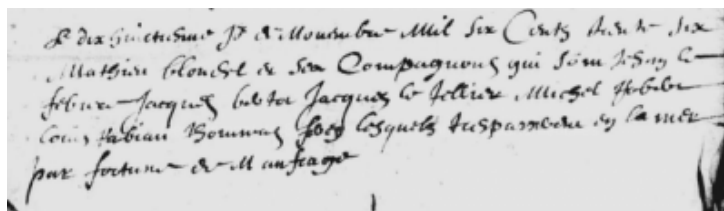 Le dix huictiesme Jor de Nouembre Mil six Cents trente six
Mathieu blondel et ses Compagnons qui sont Jehan le
febure Jacques Jacques le Tellier Michel
Louis fabian Thomas lesquels trespasserent en la mer
par fortune de Naufrage